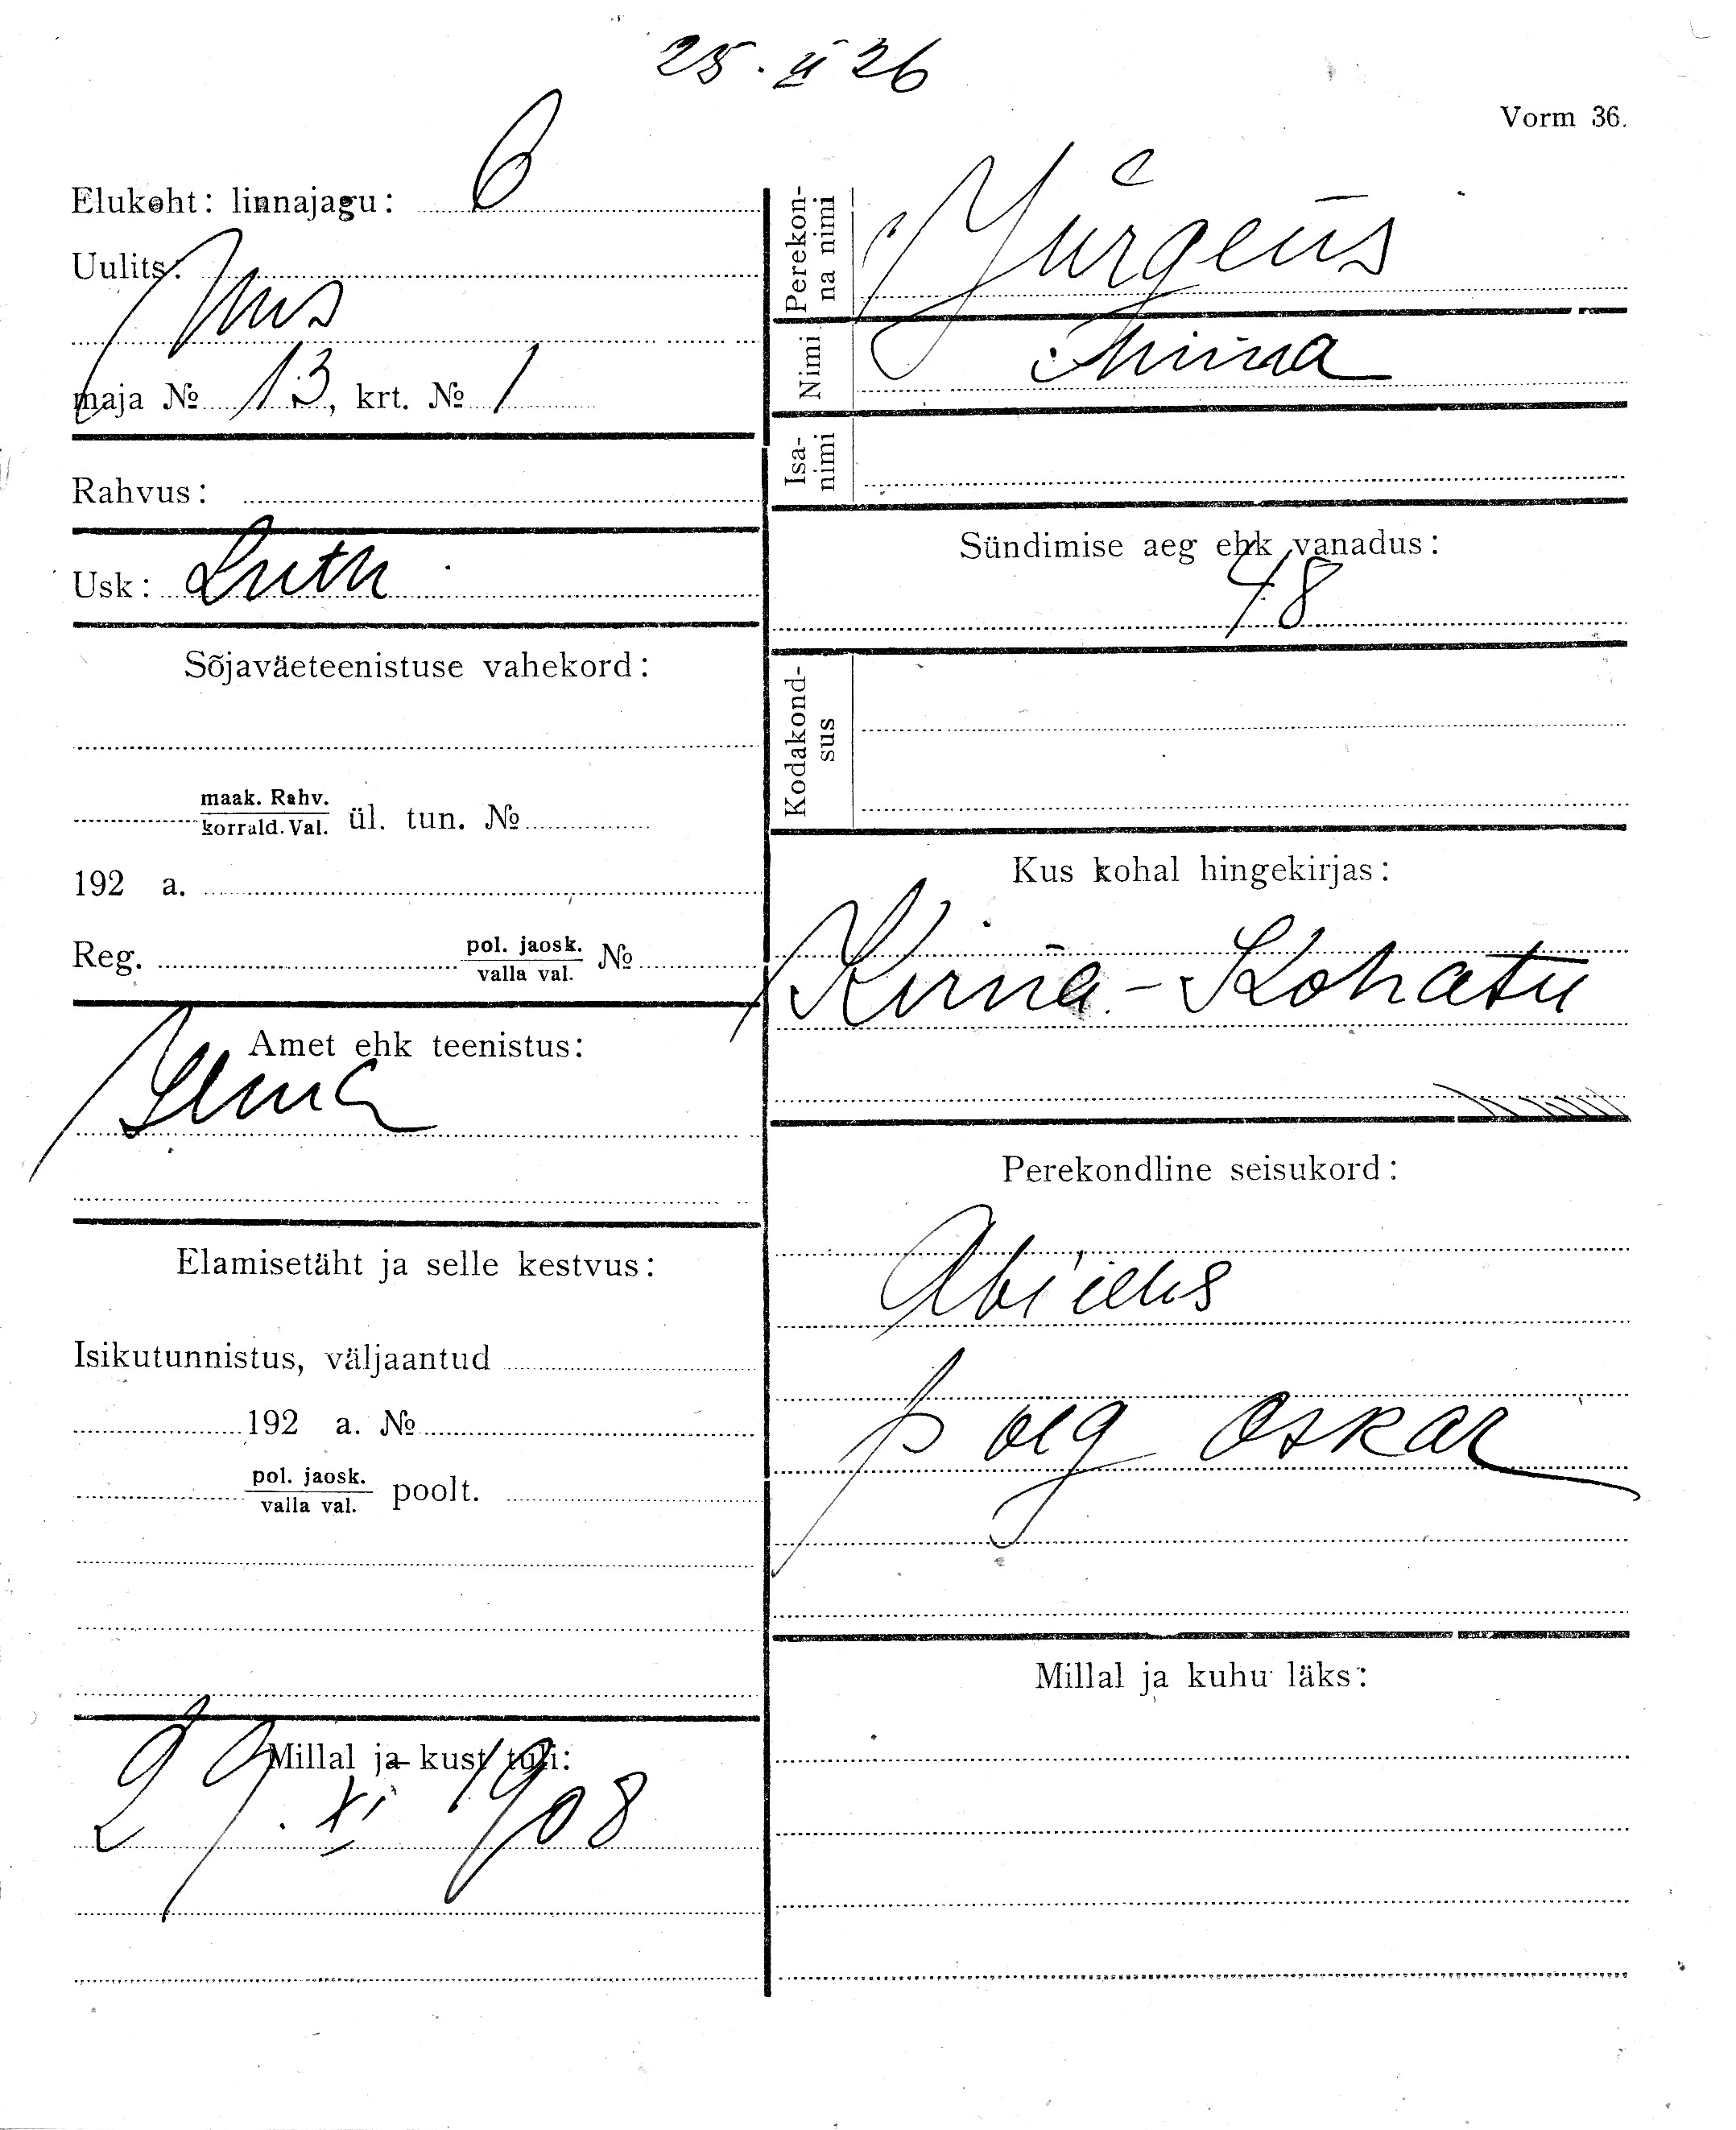 25. II 26
Vorm 36.
Elukoht: linnajagu: 6
Uulits:
maja № 13, krt. № 1
Rahvus:
Usk: Luth
Sõjaväeteenistuse vahekord:
maak. Rahv.
korrald. Val. ül. tun. №
192 a.
Reg. pol. jaosk. №
valla val.
Amet ehk teenistus:
Elamisetäht ja selle kestvus:
Isikutunnistus, väljaantud
192 a. №
pol. jaosk.
valla val. poolt.
Millal ja kust tuli:
29. XI 1908
Perekon-
na nimi Jürgens
Nimi Miina
Isa-
nimi
Sündimise aeg ehk vanadus:
48
Kodakond-
sus
Kus kohal hingekirjas:
Kirna-Kohatu
Perekondline seisukord:
Abielus
poeg Oskar
Millal ja kuhu läks: